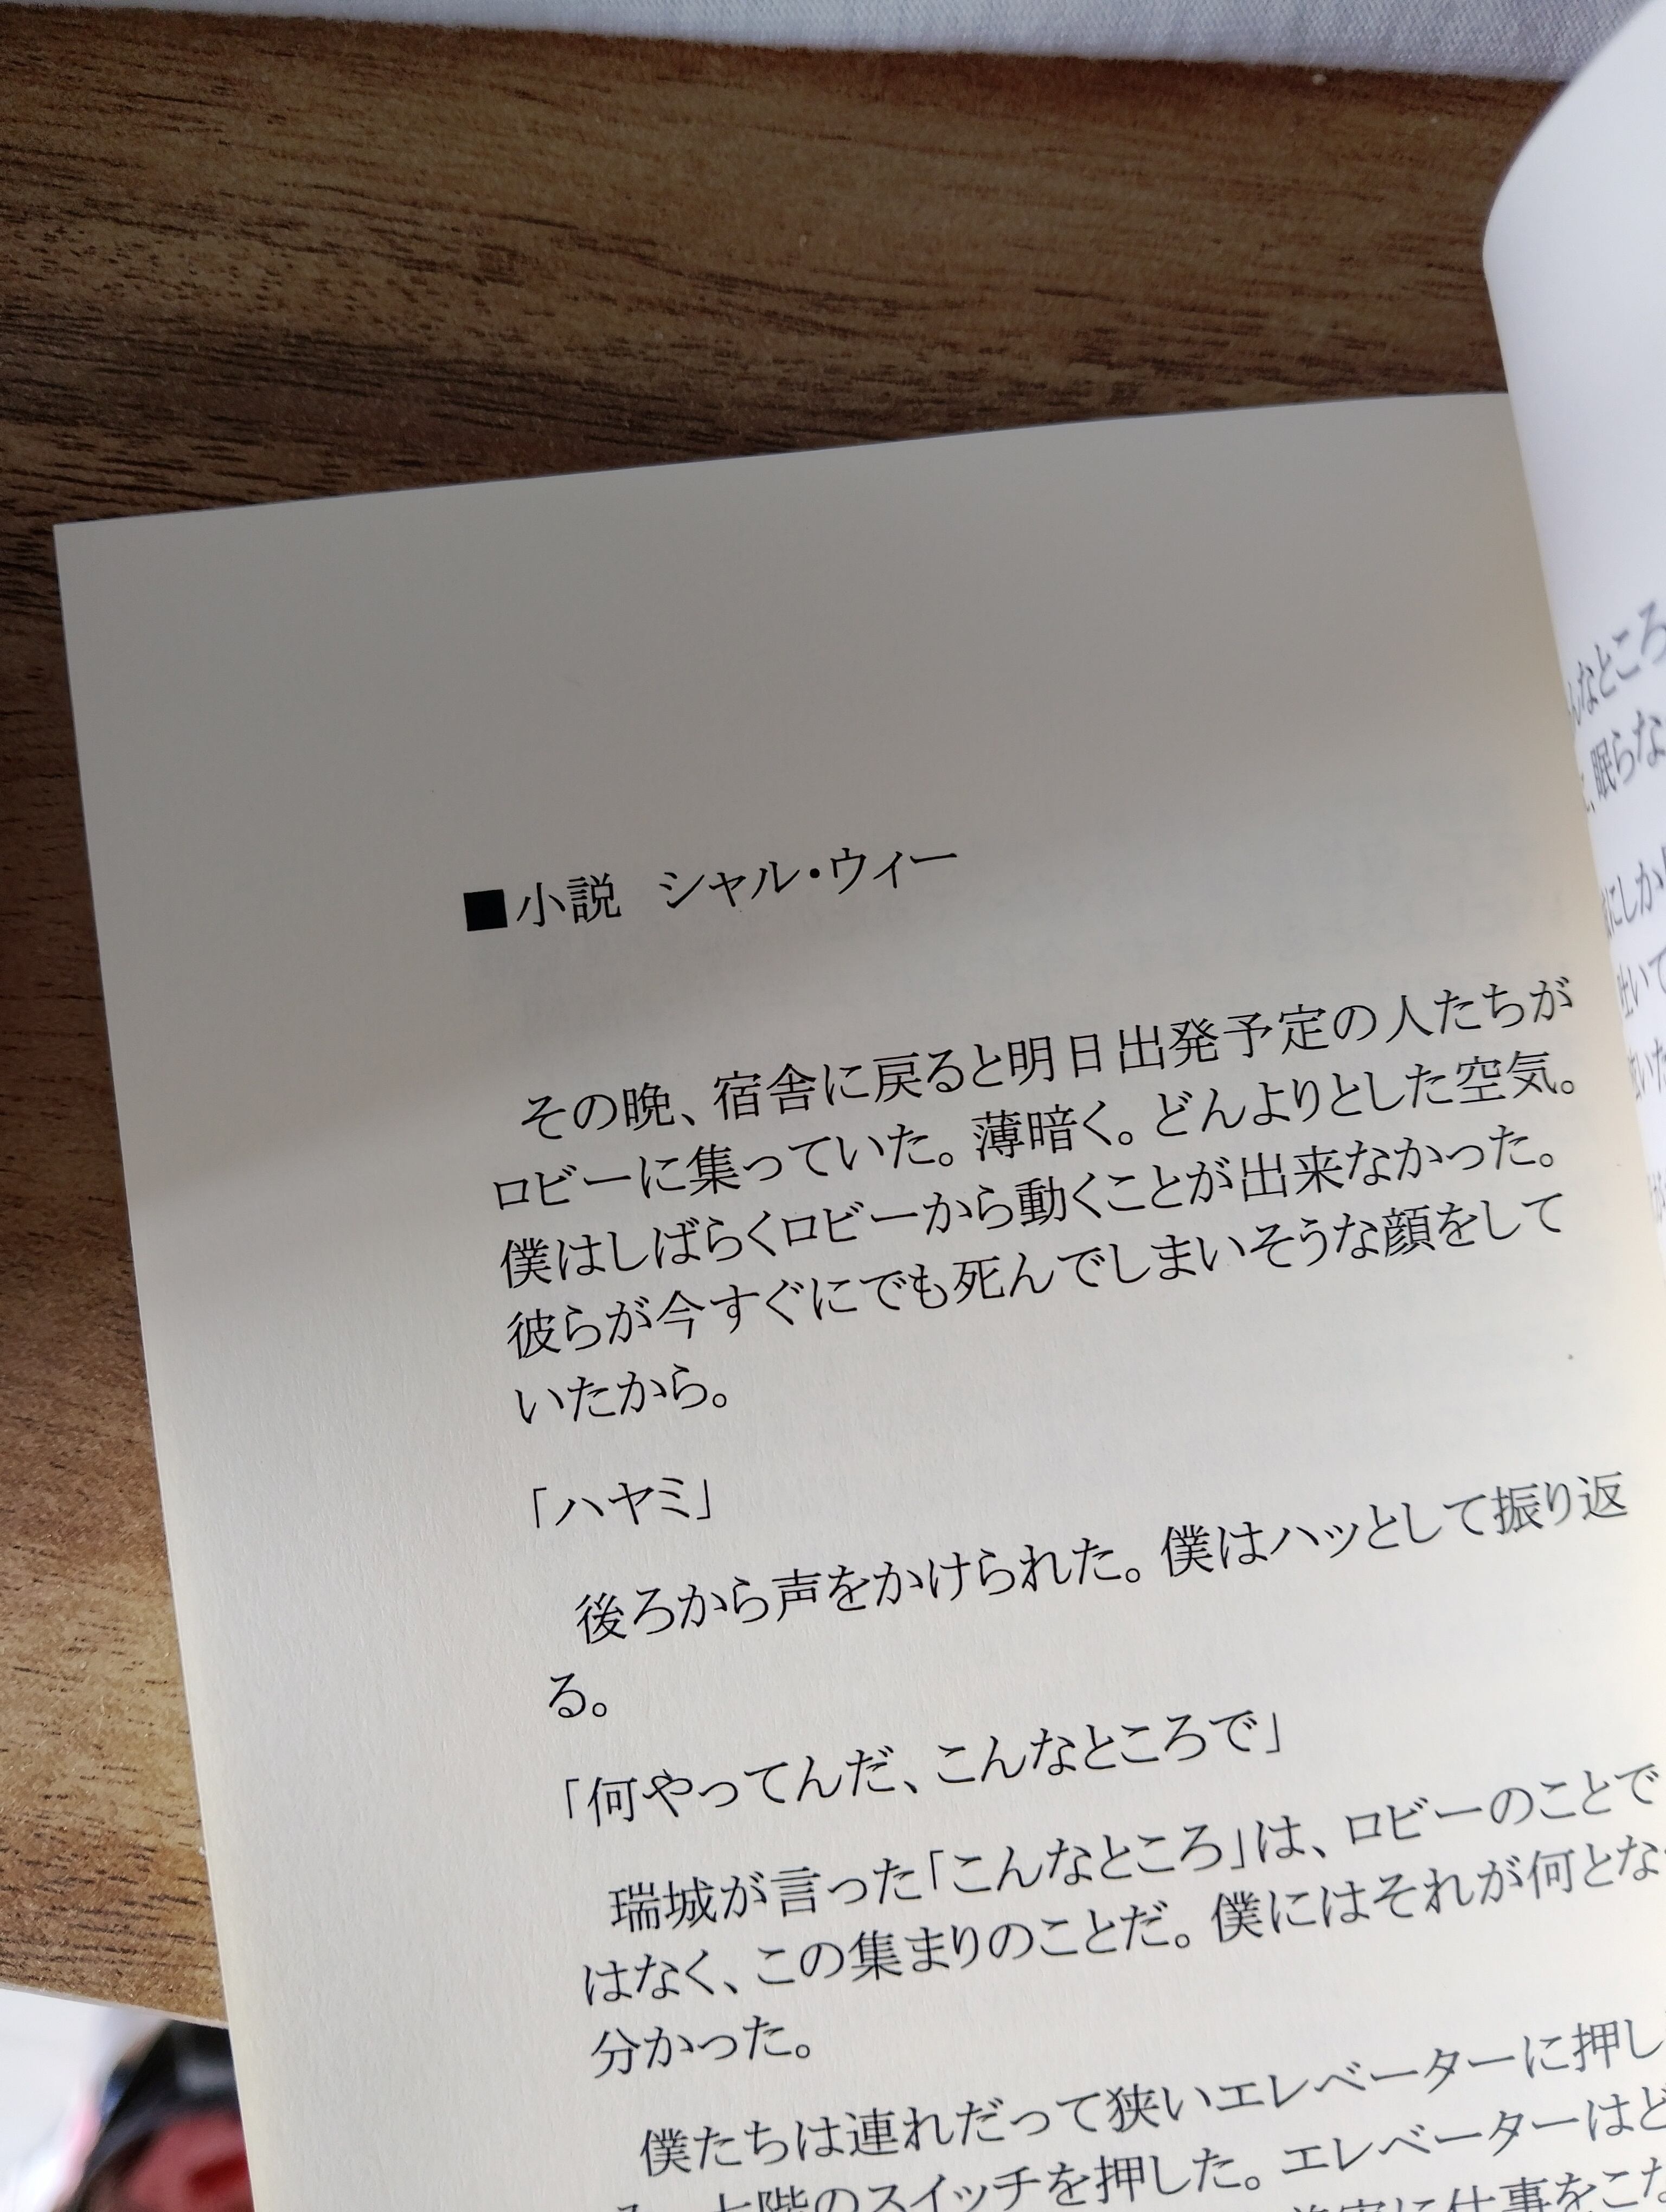 ■小説　シャル・ウィー
その晩、宿舎に戻ると明日出発予定の人たちが
ロビーに集っていた。薄暗く。どんよりとした空気。
僕はしばらくロビーから動くことが出来なかった。
彼らが今すぐにでも死んでしまいそうな顔をして
いたから。
「ハヤミ」
後ろから声をかけられた。僕はハッとして振り返
る。
「何やってんだ、こんなところで」
瑞城が言った「こんなところ」は、ロビーのことで
はなく、この集まりのことだ。僕にはそれが何とな
分かった。
僕たちは連れだって狭いエレベーターに押し
七階のスイッチを押した。エレベーターはど
に仕事をこな
んなところ
、眠らな
にしか
吐いて